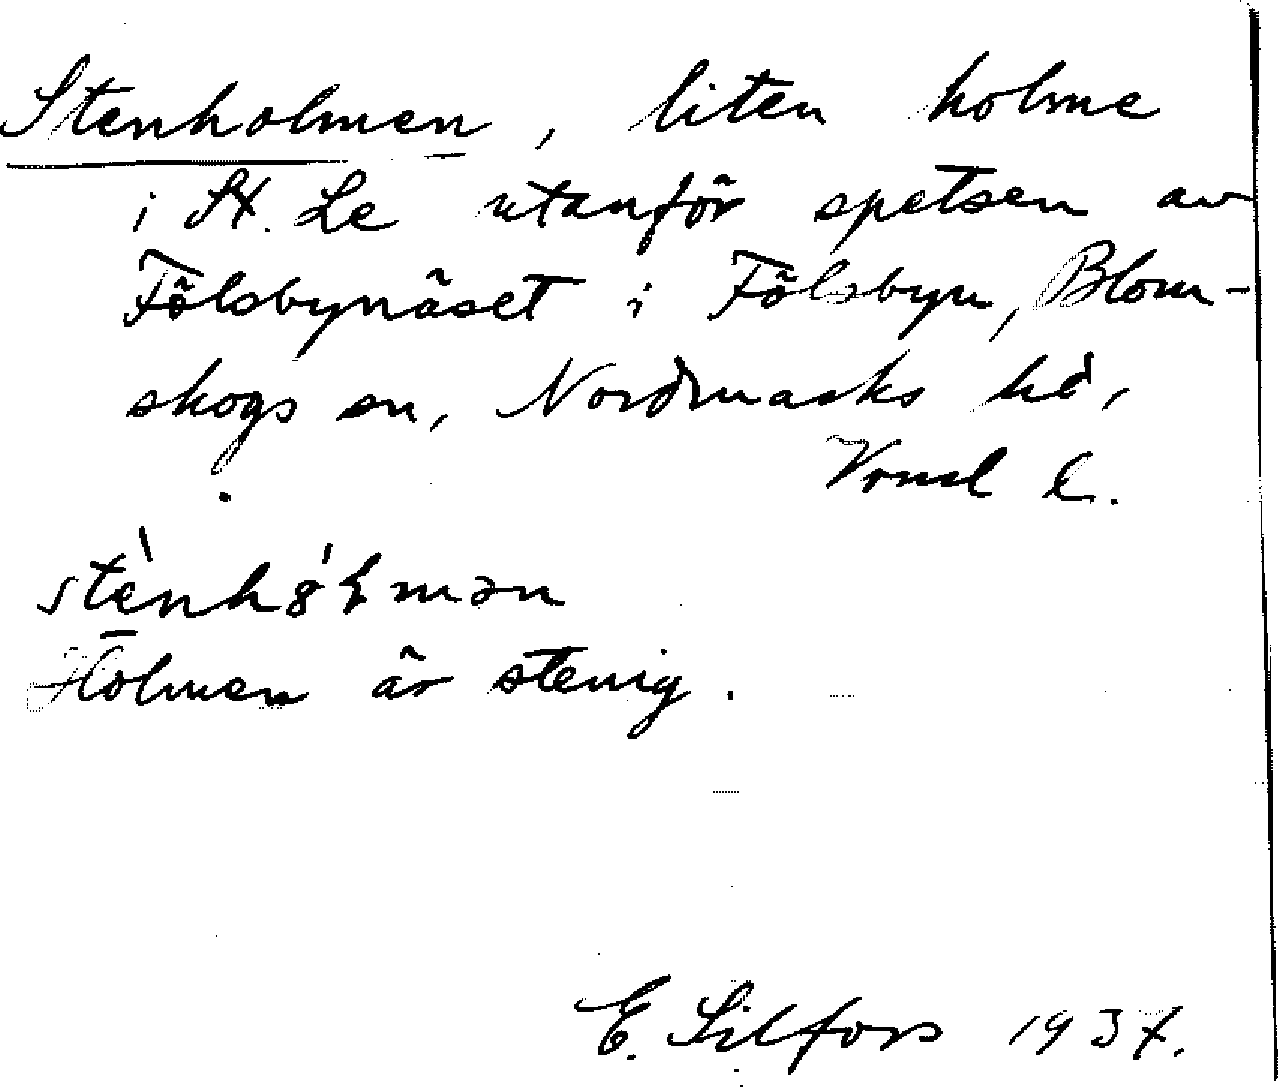 Stenholmen, liten holme
i St. Le utanför spetsen av
Fölsbynäset i Fölsbyn, Blom-
skogs sn, Nordmarks hd,
Vrml l.
stènhålmən
Holmen är stenig.
E. Lilfors 1937.